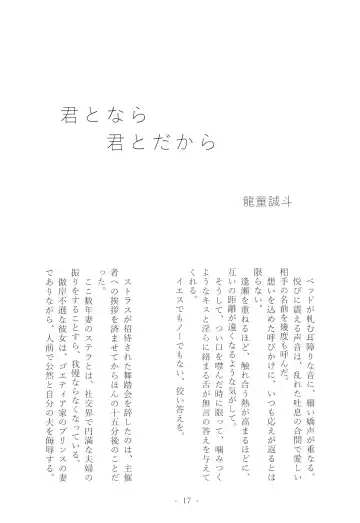 君となら
君とだから
龍童誠斗
ベッドが軋む耳障りな音に、細い嬌声が重なる。
悦びに震える声音は、乱れた吐息の合間で愛しい
相手の名前を幾度も呼んだ。
想いを込めた呼びかけに、いつも応えが返るとは
限らない。
逢瀬を重ねるほど、触れ合う熱が高まるほどに、
互いの距離が遠くなるような気がして。
そうして、つい口を噤んだ時に限って、噛みつく
ようなキスと淫らに絡まる舌が無言の答えを与えて
くれる。
イエスでもノーでもない、狡い答えを。
ストラスが招待された舞踏会を辞したのは、主催
者への挨拶を済ませてからほんの十五分後のことだ
った。
ここ数年妻のステラとは、社交界で円満な夫婦の
振りをすることすら、我慢ならなくなっている。
傲岸不遜な彼女は、ゴエティア家のプリンスの妻
でありながら、人前で公然と自分の夫を侮辱する。
- 17 -